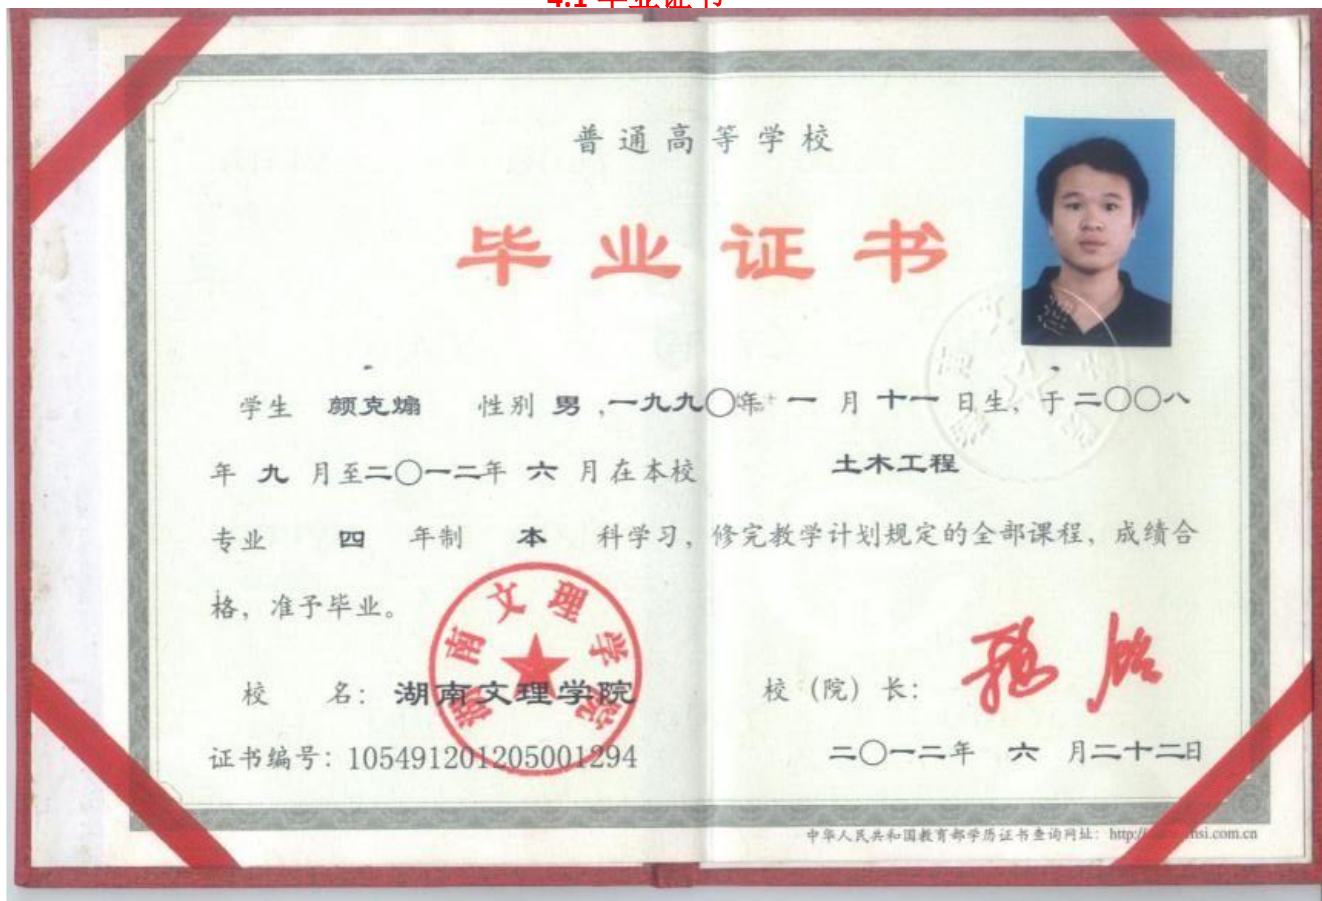 4.1 毕业证书
普通高等学校
毕业证书
学生 颜克煸 性别 男 ,一九九〇年 一 月 十一 日生, 于 二〇〇八
年 九 月至二〇一二年 六 月在本校 土木工程
专业 四 年制 本 科学习, 修完教学计划规定的全部课程, 成绩合
格, 准予毕业。
湖南文理学院
校 名: 湖南文理学院
校 (院) 长:
证书编号: 105491201205001294
二〇一二年 六 月二十二日
中华人民共和国教育部学历证书查询网址: http:// hsi.com.cn